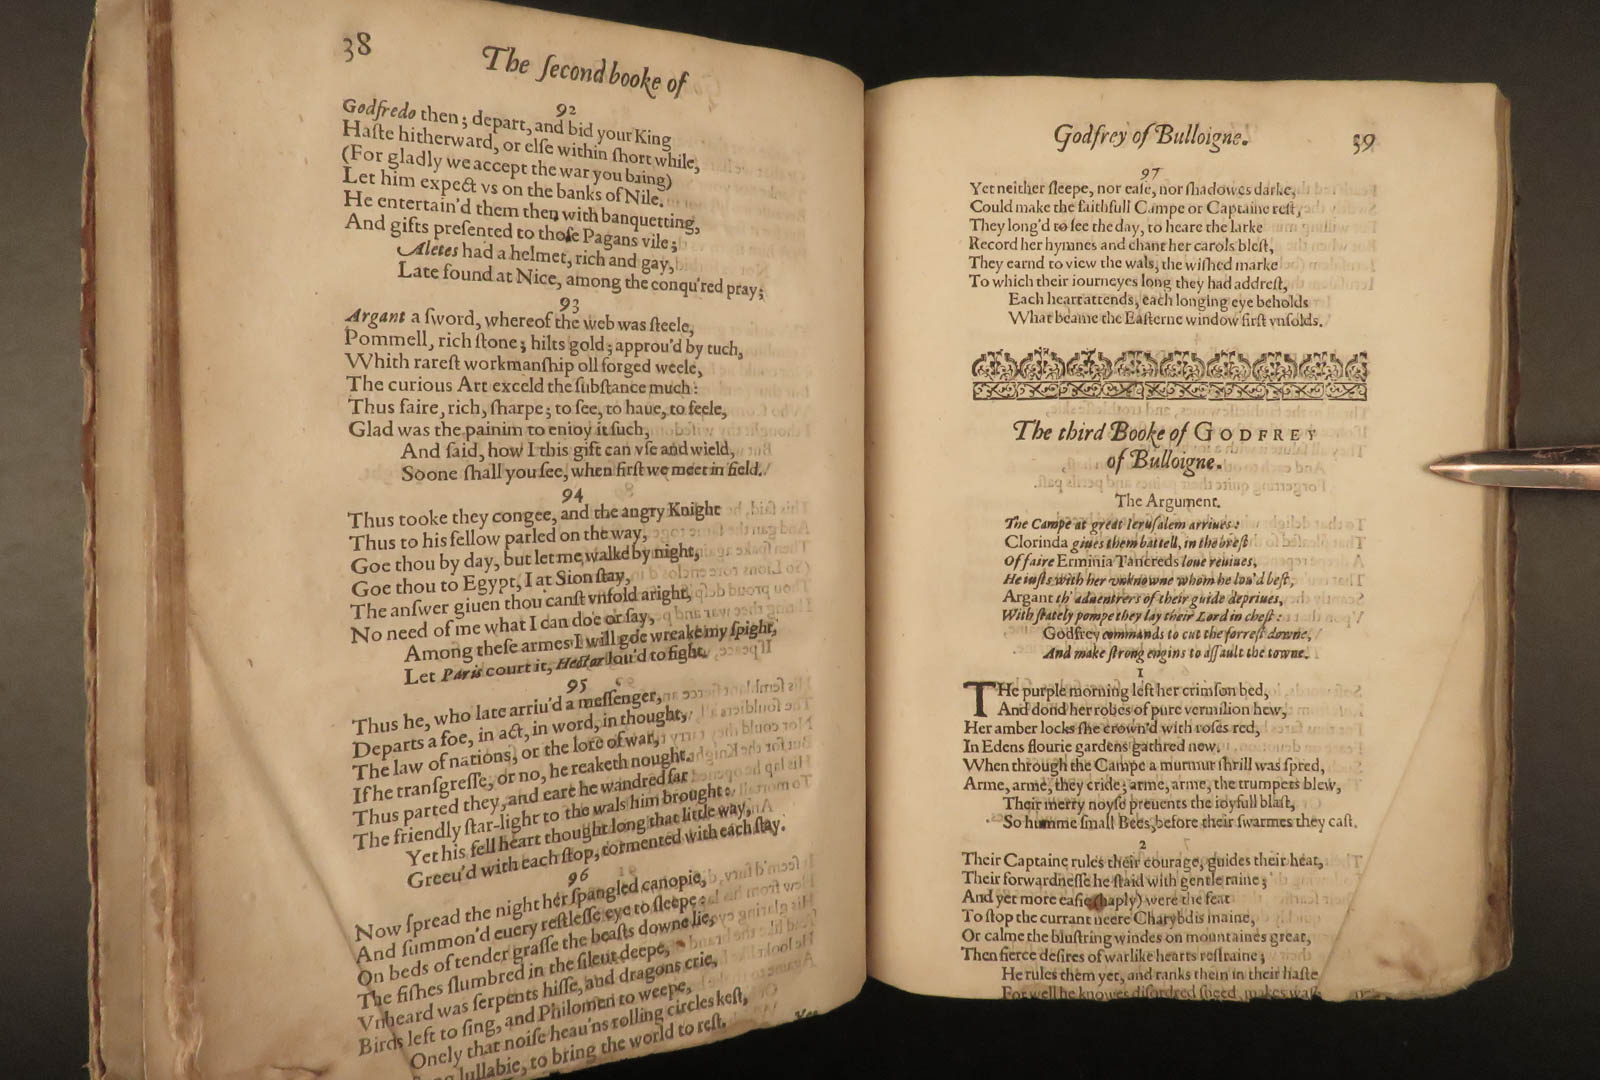 38
The ſecond booke of
92
Godfredo then; depart, and bid your King
Haſte hitherward, or elſe within ſhort while,
(For gladly we accept the war you bring)
Let him expect vs on the banks of Nile.
He entertain'd them then with banquetting,
And gifts preſented to thoſe Pagans vile;
Aletes had a helmet, rich and gay,
Late found at Nice, among the conqu'red pray;
93
Argant a ſword, whereof the web was ſteele,
Pommell, rich ſtone; hilts gold; approu'd by tuch,
Whith rareſt workmanſhip oll forged weele,
The curious Art exceld the ſubſtance much:
Thus faire, rich, ſharpe; to ſee, to haue, to feele,
Glad was the painim to enioy it ſuch,
And ſaid, how I this gift can vſe and wield,
Soone ſhall you ſee, when firſt we meet in field.
94
Thus tooke they congee, and the angry Knight
Thus to his fellow parled on the way,
Goe thou by day, but let me walke by night,
Goe thou to Egypt, I at Sion ſtay,
The anſwer giuen thou canſt vnfold aright,
No need of me what I can doe or ſay,
Among theſe armes I will goe wreake my ſpight,
Let Paris court it, Hector lou'd to fight.
95
Thus he, who late arriu'd a meſſenger,
Departs a foe, in act, in word, in thought,
The law of nations, or the lore of war,
If he tranſgreſſe, or no, he reaketh nought.
Thus parted they, and eare he wandred far
The friendly ſtar-light to the wals him brought:
Yet his fell heart thought long that little way,
Greeu'd with each ſtop, tormented with each ſtay.
96
Now ſpread the night her ſpangled canopie,
And ſummon'd euery reſtleſſe eye to ſleepe:
On beds of tender graſſe the beaſts downe lie,
The fiſhes ſlumbred in the ſilent deepe,
Vnheard was ſerpents hiſſe, and dragons crie,
Birds left to ſing, and Philomen to weepe,
Onely that noiſe heau'ns rolling circles keſt,
lullabie, to bring the world to reſt.
Godfrey of Bulloigne.
39
97
Yet neither ſleepe, nor eaſe, nor ſhadowes darke,
Could make the faithfull Campe or Captaine reſt,
They long'd to ſee the day, to heare the larke
Record her hymnes and chant her carols bleſt,
They earnd to view the wals, the wiſhed marke
To which their iourneyes long they had addreſt,
Each heart attends, each longing eye beholds
What beame the Eaſterne window firſt vnfolds.
The third Booke of GODFREY
of Bulloigne.
The Argument.
The Campe at great Ieruſalem arriues:
Clorinda giues them battell, in the breſt
Of faire Erminia Tancreds loue reuiues,
He iuſts with her vnknowne whom he lou'd beſt,
Argant th' aduentrers of their guide depriues,
With ſtately pompe they lay their Lord in cheſt:
Godfrey commands to cut the forreſt downe,
And make ſtrong engins to aſſault the towne.
1
THe purple morning left her crimſon bed,
And dond her robes of pure vermilion hew,
Her amber locks ſhe crown'd with roſes red,
In Edens flourie gardens gathred new.
When through the Campe a murmur ſhrill was ſpred,
Arme, arme, they cride; arme, arme, the trumpets blew,
Their merry noyſe preuents the ioyfull blaſt,
So humme ſmall Bees, before their ſwarmes they caſt.
2
Their Captaine rules their courage, guides their heat,
Their forwardneſſe he ſtaid with gentle raine;
And yet more eaſie (haply) were the feat
To ſtop the currant neere Charybdis maine,
Or calme the bluſtring windes on mountaines great,
Then fierce deſires of warlike hearts reſtraine;
He rules them yet, and ranks them in their haſte
For well he knowes diſordred ſpeed makes waſt